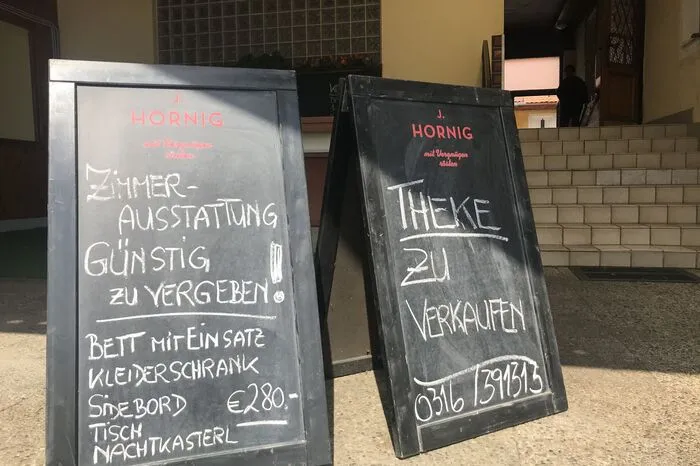 J.
HORNIG
mit Vergnügen
rösten
ZIMMER-
AUSSTATTUNG
GÜNSTIG
ZU VERGEBEN!
BETT MIT EINSATZ
KLEIDERSCHRANK
SIDEBORD €280.-
TISCH
NACHTKASTERL
J.
HORNIG
mit Vergnügen
rösten
THEKE
ZU
VERKAUFEN
0316/391313